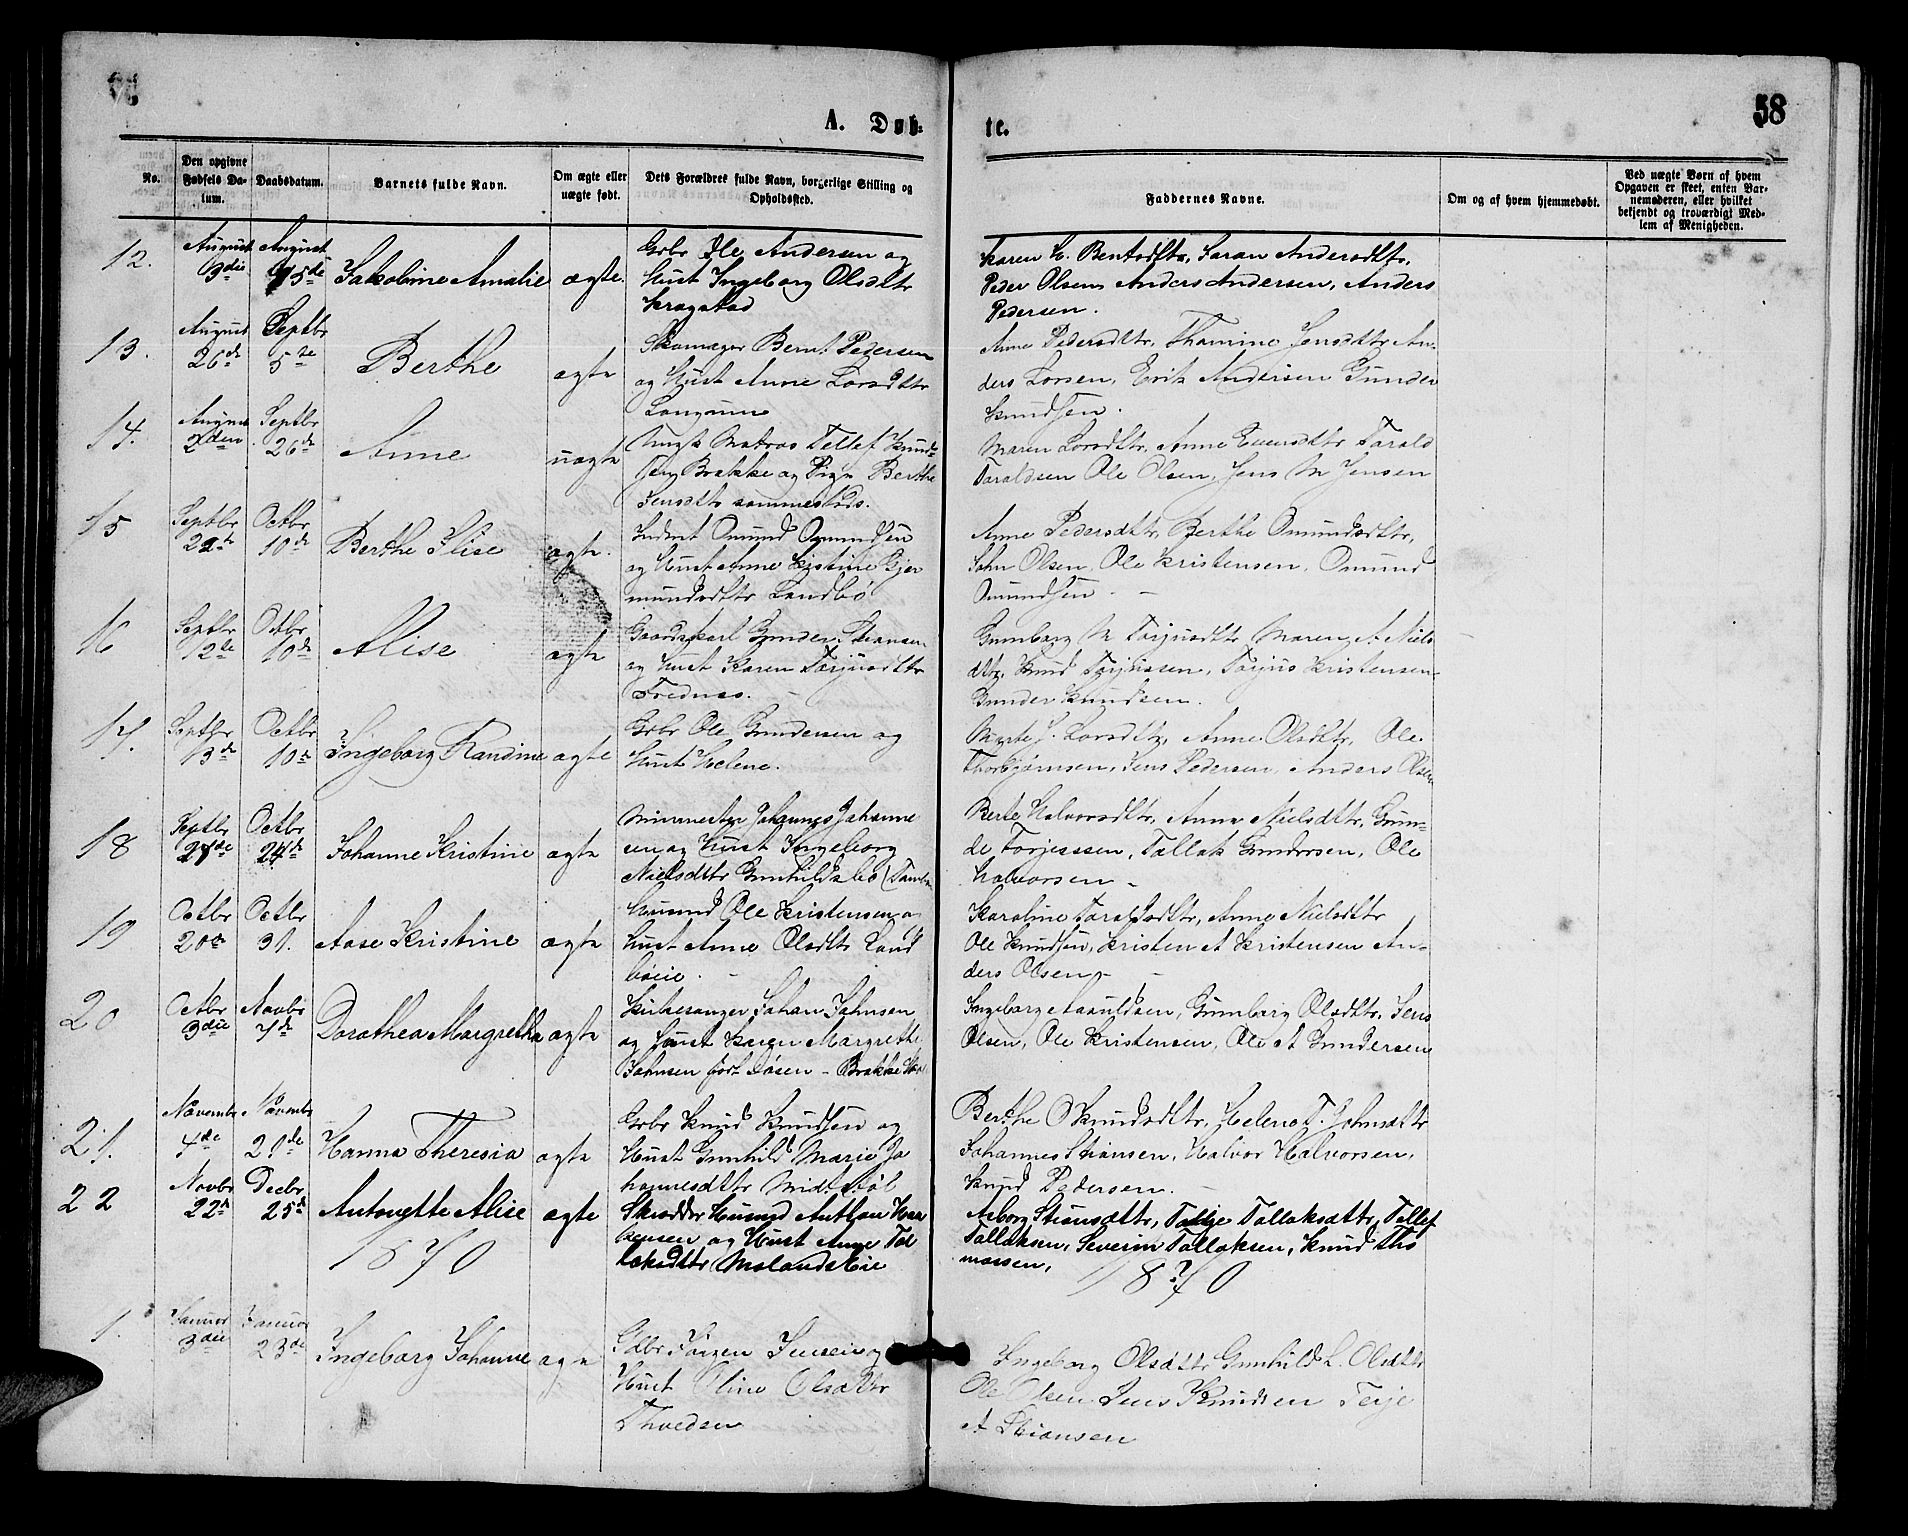 58
A. Døb-
te.
No.
Den opgivne
Fødsels Da-
tum.
Daabsdatum.
Barnets fulde Navn.
Om ægte eller
uægte født.
Dets Forældres fulde Navn, borgerlige Stilling og
Opholdssted.
Faddernes Navne.
Om og af hvem hjemmedøbt.
Ved uægte Børn af hvem
Opgaven er skeet, enten Bar-
nemoderen, eller hvilket
bekjendt og troværdigt Med-
lem af Menigheden.
12. August 3die August 15de Jakobine Amalie ægte.
Grbr Ole Andersen og
Hust Ingeborg Olsdttr
Kragstad
Karen E. Bentsdttr, Saran Andersdttr,
Peder Olsen, Anders Andersen, Anders
Pedersen.
13. August 26d Septbr 5te Berthe ægte
Skomager Bernt Pedersen
og Hust Anne Larsdttr
Langum
Anne Pedersdttr, Thomine Jensdttr An-
ders Larsen, Erik Andersen Gunder
Knudsen.
14. August 2den Septbr 26d Anne uægte
Ungk Matros Tellef Knud-
sen Brække og Pige Berthe
Jensdttr sammesteds.
Maren Larsdttr, Anne Evensdttr Tarald
Taraldsen Ole Olsen, Jens M Jensen
15 Septbr Octbr 10d Berthe Elise ægte.
Inderst Omund Omundsen
og Hust Anne Kistine Gjer
mundsdttr Landbø
Anne Pedersdttr, Berthe Omundsdttr,
John Olsen, Ole Kristensen, Omund
Omundsen.
16 Septbr 12de Octbr 10d Alise ægte
Gaardskarl Gunder Stiansen
og Hust Karen Torjusdttr
Frednes.
Gunborg M Torjusdttr, Maren A Niels
dttr, Knud Torjussen, Torjus Kristensen,
Gunder Knudsen.
17. Septbr 13d Octbr 10d Ingeborg Randine ægte
Grbr Ole Gundersen og
Hust Helene.
Marte J. Larsdttr, Anne Olsdttr, Ole
Thorbjørnsen, Jens Pedersen, Anders Olsen
18 Septbr 27de Octbr 24d Johanne Kristine ægte
Minnestyr Johannes Johanne
sen og Hust Ingeborg
Nielsdttr Gunhildsbo
Berte Halvorsdttr, Anne Nielsdttr, Gun-
de Torjessen, Tallak Gundersen, Ole
Halvorsen
19 Octbr 20d Octbr 31. Aase Kristine ægte
Husmd Ole Kristensen o
Hust Anne Olsdttr Land
bøeie.
Karoline Taraldsdttr, Anne Nielsdttr
Ole Knudsen, Kristen A Kristensen An-
ders Olsen
20 Octbr 3die Novbr 7d Dorothea Margretha ægte
Kirkesanger Johan Johnsen
og Hust Karen Margrethe
Johnsen født Løsen - Brække
Ingeborg Aanuldsen, Gunborg Olsdttr, Jens
Olsen, Ole Kristensen, Ole A Gundersen
21. Novembr 4de Novembr 21de Hanna Theresia ægte
Grbr Knud Knudsen og
Hust Gunhild Marie Jo
hannesdttr Midtbøl
Berthe O Knudsdttr, Helene T. Johnsdttr
Johannes Stiansen, Halvor Halvorsen,
Knud Pedersen.
22 Novbr 22d Decbr 25d Antonette Alise ægte
Skrædder Husmd Anthon Haa
kensen og Hust Anne Tal
laksdttr Molands Eie
Asborg Stiansdttr, Tallje Tallaksdttr, Tellef
Tallaksen, Severin Tallaksen, Knud Tho
massen,
1870
1870
1. Januar 3die Januar 23de Ingeborg Johanne ægte
Gdbr Jørgen Jensen og
Hust Oline Olsdttr
Thveden
Ingeborg Olsdttr Gunhild L. Olsdttr
Ole Olsen Jens Knudsen Terje
A Stiansen